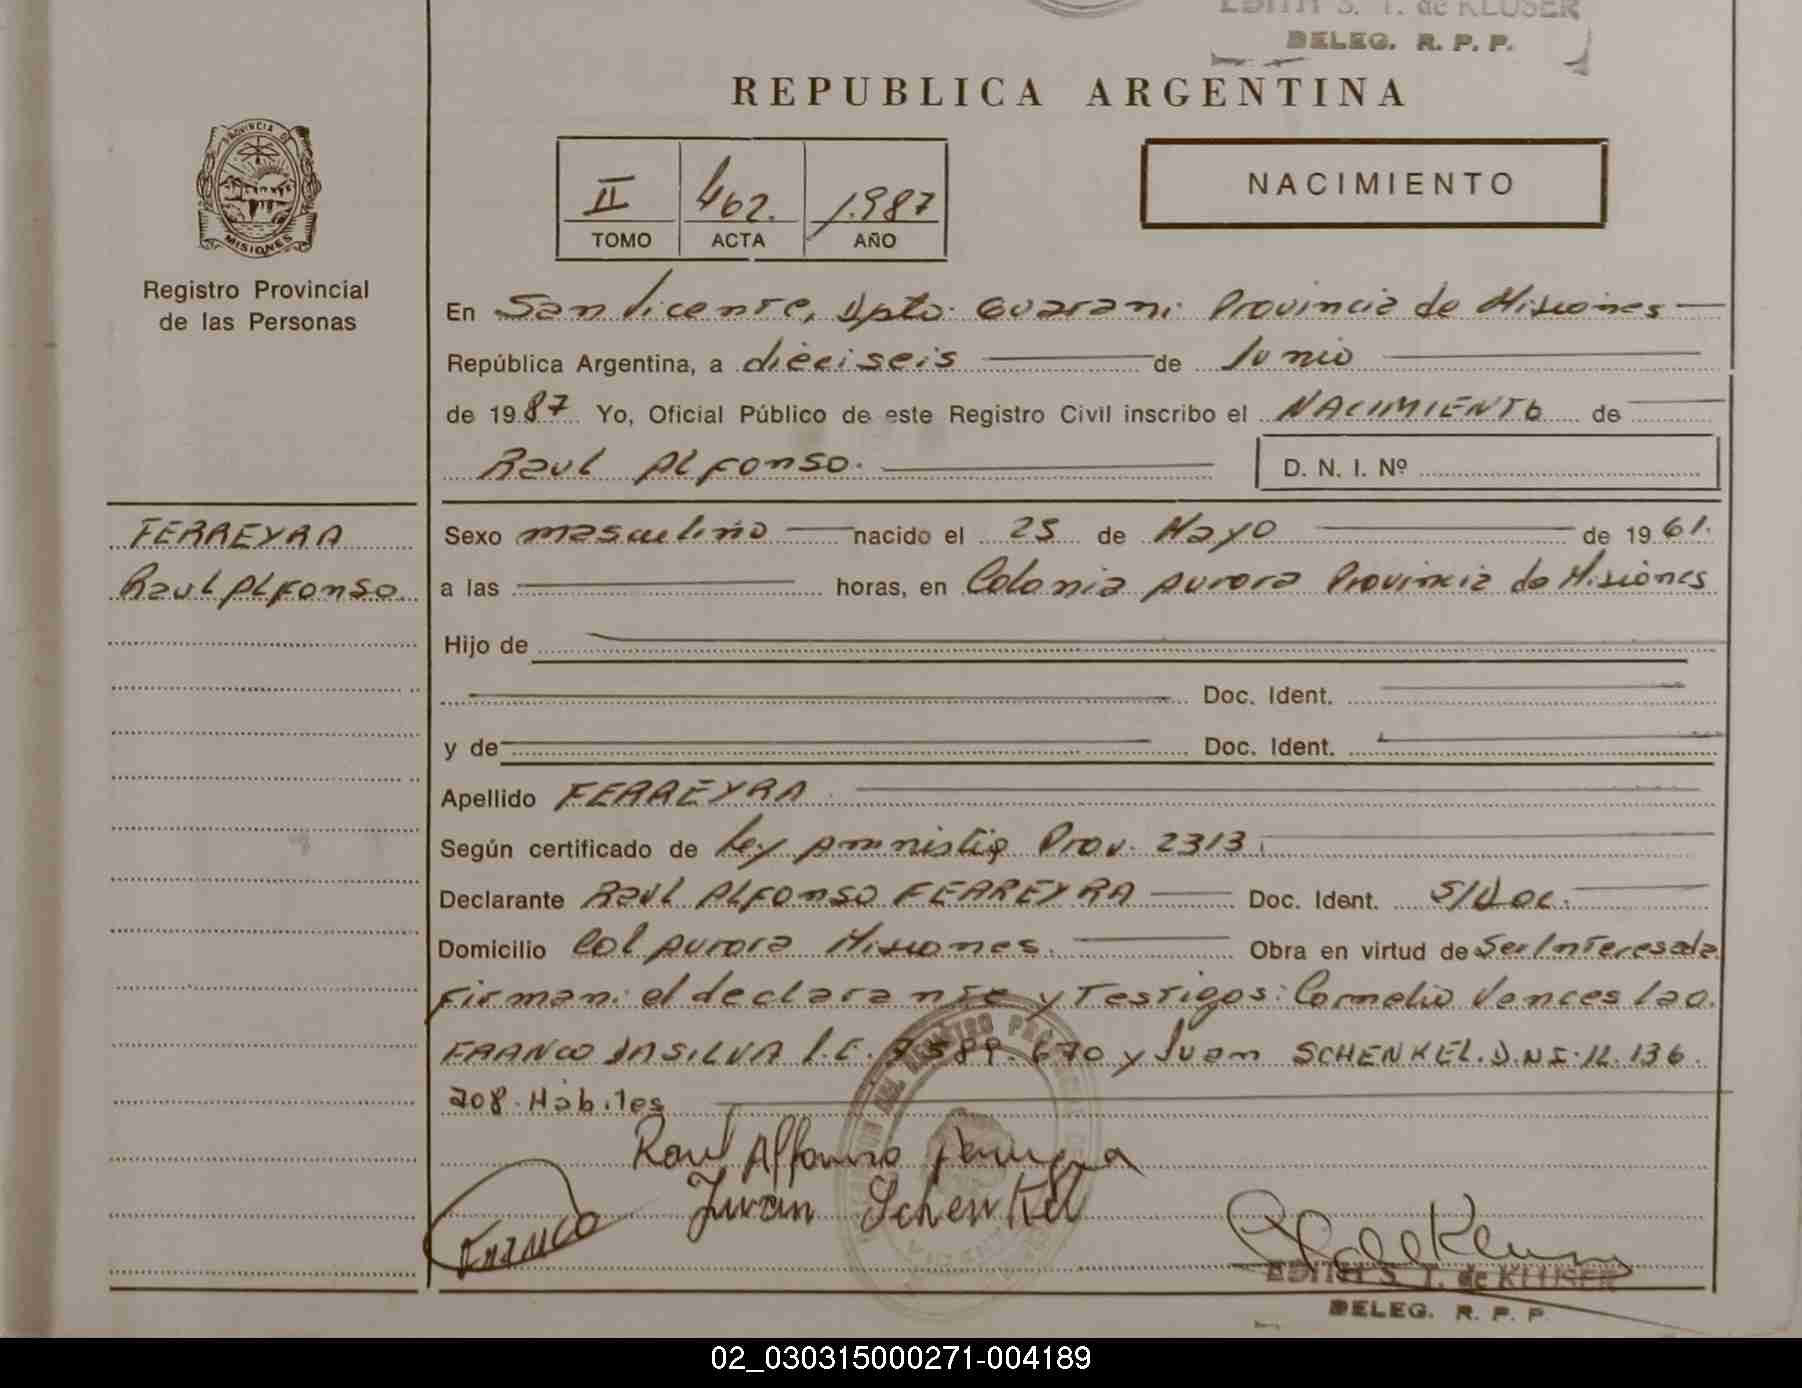 EDITH S. T. de KLUSER
DELEG. R. P. P.
REPUBLICA ARGENTINA
PROVINCIA DE
MISIONES
Registro Provincial
de las Personas
II 462. 1.987
TOMO ACTA AÑO
NACIMIENTO
En San Vicente, Dpto. Guarani Provincia de Misiones
República Argentina, a dieciseis de Junio
de 1987 Yo, Oficial Público de este Registro Civil inscribo el NACIMIENTO de
Raul Alfonso. D. N. I. Nº
FERREYRA
Raul Alfonso.
Sexo masculino nacido el 25 de Mayo de 1961.
a las horas, en Colonia Aurora Provincia de Misiones
Hijo de
Doc. Ident.
y de Doc. Ident.
Apellido FERREYRA
Según certificado de Ley Amnistia Prov. 2313.
Declarante Raul Alfonso FERREYRA Doc. Ident. S/Doc.
Domicilio Col Aurora Misiones. Obra en virtud de Ser Interesado.
Firman: el declarante y Testigos: Cornelio Venceslao.
FRANCO DASILVA L.E. 7.589.670 y Juan SCHENKEL. D.N.I. 12.136.
208. Hábiles
Raul Alfonso Ferreyra
Juan Schenkel
FRANCO
EDITH S. T. de KLUSER
DELEG. R. P. P.
02_030315000271-004189